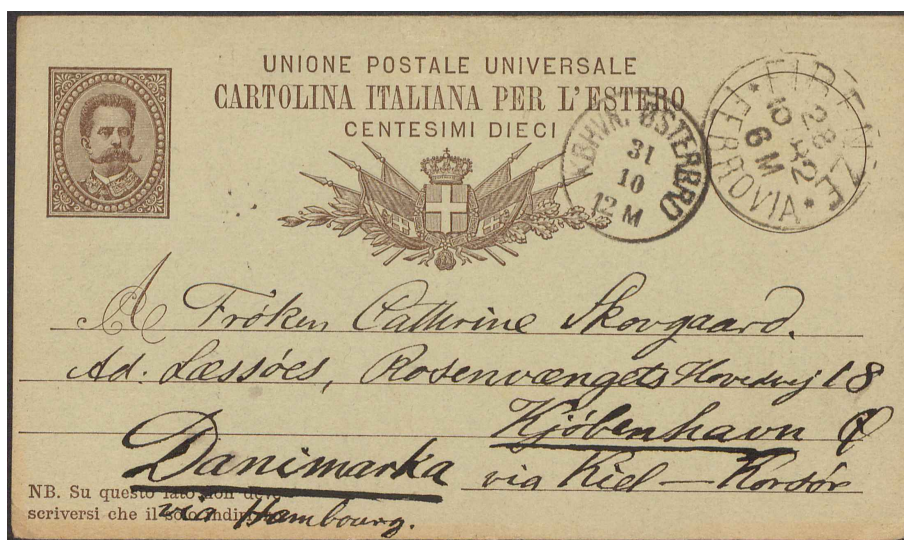 UNIONE POSTALE UNIVERSALE
CARTOLINA ITALIANA PER L'ESTERO
CENTESIMI DIECI
FIRENZE
28
10 92
6 M
FERROVIA
KBHVN. ØSTERBRO
31
10
12 M
A Fröken Cathrine Skovgaard.
Ad. Læssöes, Rosenvængets Hovedvej 18
Kjöbenhavn Ø
Danimarka via Kiel — Korsör
via Hambourg.
NB. Su questo lato non deve
scriversi che il solo indirizzo